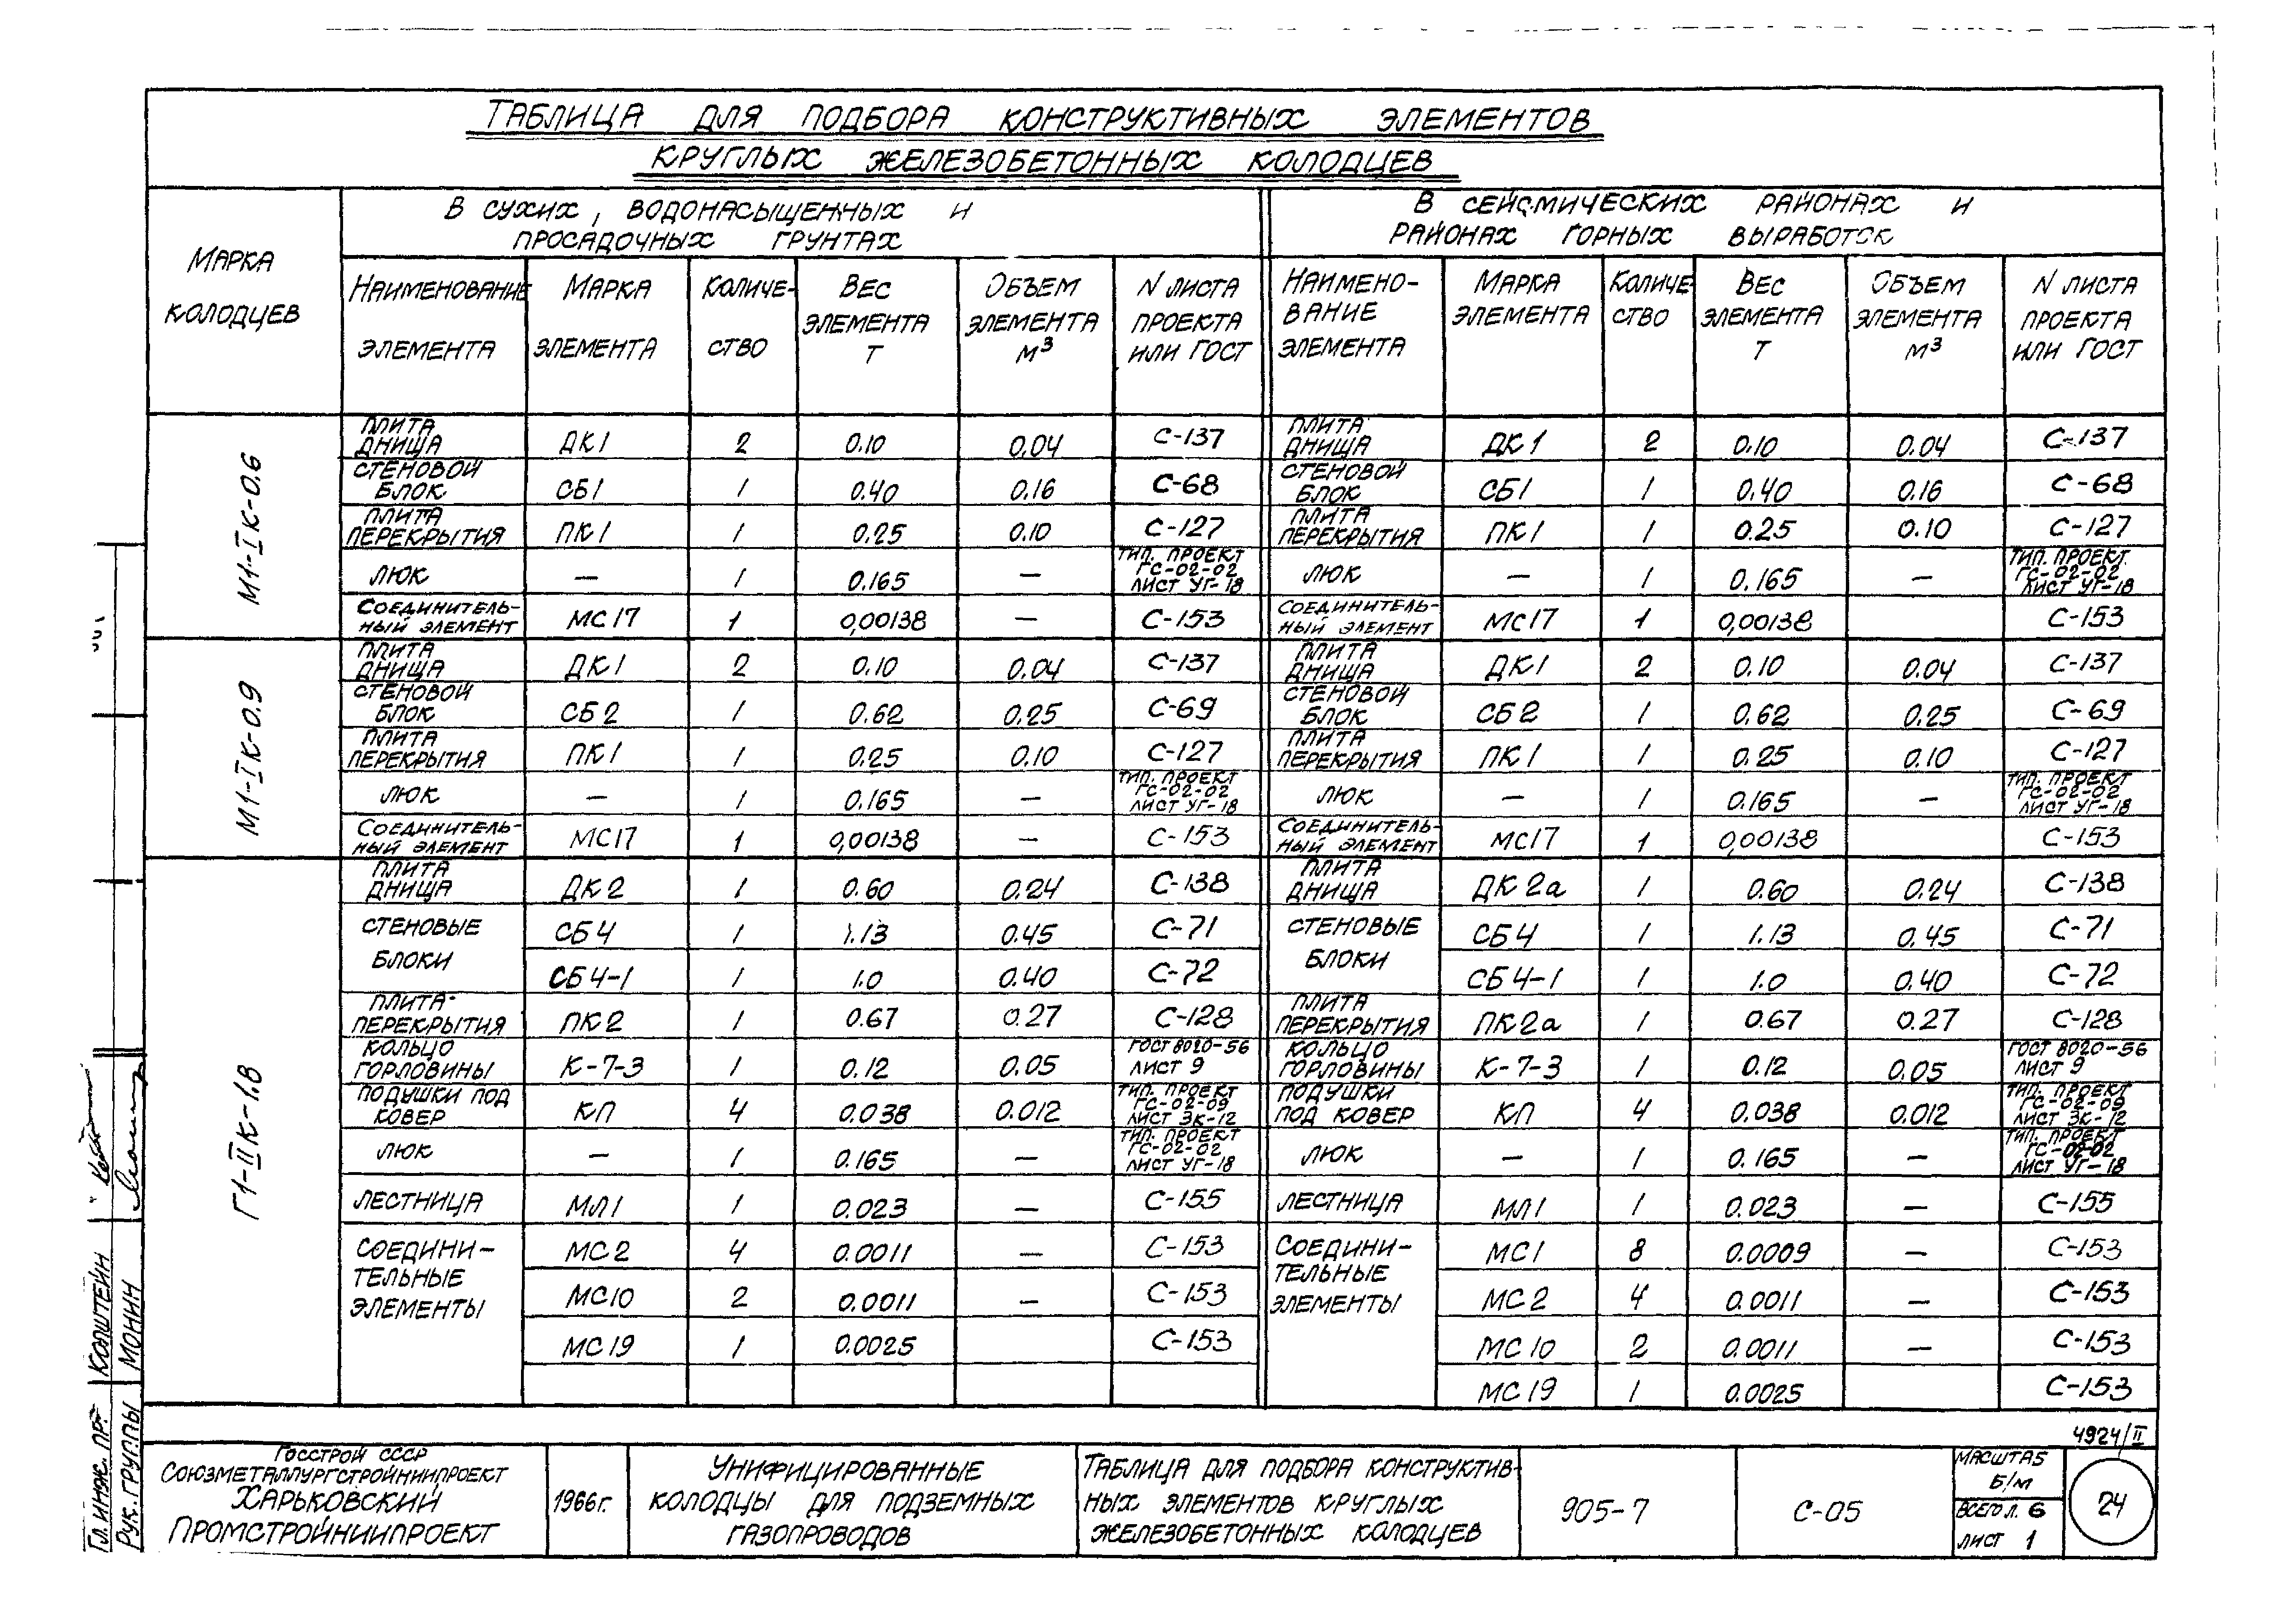 ТАБЛИЦА ДЛЯ ПОДБОРА КОНСТРУКТИВНЫХ ЭЛЕМЕНТОВ
КРУГЛЫХ ЖЕЛЕЗОБЕТОННЫХ КОЛОДЦЕВ
МАРКА КОЛОДЦЕВ
В СУХИХ, ВОДОНАСЫЩЕННЫХ И
ПРОСАДОЧНЫХ ГРУНТАХ
В СЕЙСМИЧЕСКИХ РАЙОНАХ И
РАЙОНАХ ГОРНЫХ ВЫРАБОТОК
НАИМЕНОВАНИЕ ЭЛЕМЕНТА | МАРКА ЭЛЕМЕНТА | КОЛИЧЕ-СТВО | ВЕС ЭЛЕМЕНТА Т | ОБЪЕМ ЭЛЕМЕНТА М³ | N ЛИСТА ПРОЕКТА ИЛИ ГОСТ | НАИМЕНО-ВАНИЕ ЭЛЕМЕНТА | МАРКА ЭЛЕМЕНТА | КОЛИЧЕ СТВО | ВЕС ЭЛЕМЕНТА Т | ОБЪЕМ ЭЛЕМЕНТА М³ | N ЛИСТА ПРОЕКТА ИЛИ ГОСТ
М1-IК-0.6
ПЛИТА ДНИЩА | ДК1 | 2 | 0.10 | 0.04 | С-137 | ПЛИТА ДНИЩА | ДК1 | 2 | 0.10 | 0.04 | С-137
СТЕНОВОЙ БЛОК | СБ1 | 1 | 0.40 | 0.16 | С-68 | СТЕНОВОЙ БЛОК | СБ1 | 1 | 0.40 | 0.16 | С-68
ПЛИТА ПЕРЕКРЫТИЯ | ПК1 | 1 | 0.25 | 0.10 | С-127 | ПЛИТА ПЕРЕКРЫТИЯ | ПК1 | 1 | 0.25 | 0.10 | С-127
ЛЮК | — | 1 | 0.165 | — | ТИП. ПРОЕКТ ГС-02-02 ЛИСТ УГ-18 | ЛЮК | — | 1 | 0.165 | — | ТИП. ПРОЕКТ. ГС-02-02 ЛИСТ УГ-18
СОЕДИНИТЕЛЬ-НЫЙ ЭЛЕМЕНТ | МС17 | 1 | 0,00138 | — | С-153 | СОЕДИНИТЕЛЬ-НЫЙ ЭЛЕМЕНТ | МС17 | 1 | 0,00138 | С-153
М1-IК-0.9
ПЛИТА ДНИЩА | ДК1 | 2 | 0.10 | 0.04 | С-137 | ПЛИТА ДНИЩА | ДК1 | 2 | 0.10 | 0.04 | С-137
СТЕНОВОЙ БЛОК | СБ2 | 1 | 0.62 | 0.25 | С-69 | СТЕНОВОЙ БЛОК | СБ2 | 1 | 0.62 | 0.25 | С-69
ПЛИТА ПЕРЕКРЫТИЯ | ПК1 | 1 | 0.25 | 0.10 | С-127 | ПЛИТА ПЕРЕКРЫТИЯ | ПК1 | 1 | 0.25 | 0.10 | С-127
ЛЮК | — | 1 | 0.165 | — | ТИП. ПРОЕКТ ГС-02-02 ЛИСТ УГ-18 | ЛЮК | — | 1 | 0.165 | — | ТИП. ПРОЕКТ ГС-02-02 ЛИСТ УГ-18
СОЕДИНИТЕЛЬ-НЫЙ ЭЛЕМЕНТ | МС17 | 1 | 0,00138 | — | С-153 | СОЕДИНИТЕЛЬ-НЫЙ ЭЛЕМЕНТ | МС17 | 1 | 0,00138 | С-153
Г1-IIК-1.8
ПЛИТА ДНИЩА | ДК2 | 1 | 0.60 | 0.24 | С-138 | ПЛИТА ДНИЩА | ДК2а | 1 | 0.60 | 0.24 | С-138
СТЕНОВЫЕ БЛОКИ | СБ4 | 1 | 1.13 | 0.45 | С-71 | СТЕНОВЫЕ БЛОКИ | СБ4 | 1 | 1.13 | 0.45 | С-71
СБ4-1 | 1 | 1.0 | 0.40 | С-72 | СБ4-1 | 1 | 1.0 | 0.40 | С-72
ПЛИТА ПЕРЕКРЫТИЯ | ПК2 | 1 | 0.67 | 0.27 | С-128 | ПЛИТА ПЕРЕКРЫТИЯ | ПК2а | 1 | 0.67 | 0.27 | С-128
КОЛЬЦО ГОРЛОВИНЫ | К-7-3 | 1 | 0.12 | 0.05 | ГОСТ 8020-56 ЛИСТ 9 | КОЛЬЦО ГОРЛОВИНЫ | К-7-3 | 1 | 0.12 | 0.05 | ГОСТ 8020-56 ЛИСТ 9
ПОДУШКИ ПОД КОВЕР | КП | 4 | 0.038 | 0.012 | ТИП. ПРОЕКТ ГС-02-09 ЛИСТ ЗК-12 | ПОДУШКИ ПОД КОВЕР | КП | 4 | 0.038 | 0.012 | ТИП. ПРОЕКТ ГС-02-09 ЛИСТ ЗК-12
ЛЮК | — | 1 | 0.165 | — | ТИП. ПРОЕКТ ГС-02-02 ЛИСТ УГ-18 | ЛЮК | — | 1 | 0.165 | — | ТИП. ПРОЕКТ ГС-02-02 ЛИСТ УГ-18
ЛЕСТНИЦА | МЛ1 | 1 | 0.023 | — | С-155 | ЛЕСТНИЦА | МЛ1 | 1 | 0.023 | — | С-155
СОЕДИНИ-ТЕЛЬНЫЕ ЭЛЕМЕНТЫ | МС2 | 4 | 0.0011 | — | С-153 | СОЕДИНИ-ТЕЛЬНЫЕ ЭЛЕМЕНТЫ | МС1 | 8 | 0.0009 | — | С-153
МС10 | 2 | 0.0011 | — | С-153 | МС2 | 4 | 0.0011 | — | С-153
МС19 | 1 | 0.0025 | С-153 | МС10 | 2 | 0.0011 | — | С-153
МС19 | 1 | 0.0025 | С-153
4924/II
ГЛ. ИНЖ. ПР. КАПШТЕЙН
РУК. ГРУППЫ МОНИН
ГОССТРОЙ СССР
СОЮЗМЕТАЛЛУРГСТРОЙНИИПРОЕКТ
ХАРЬКОВСКИЙ
ПРОМСТРОЙНИИПРОЕКТ
1966г.
УНИФИЦИРОВАННЫЕ
КОЛОДЦЫ ДЛЯ ПОДЗЕМНЫХ
ГАЗОПРОВОДОВ
ТАБЛИЦА ДЛЯ ПОДБОРА КОНСТРУКТИВ-
НЫХ ЭЛЕМЕНТОВ КРУГЛЫХ
ЖЕЛЕЗОБЕТОННЫХ КОЛОДЦЕВ
905-7
С-05
МАСШТАБ
Б/М
ВСЕГО Л. 6
ЛИСТ 1
24